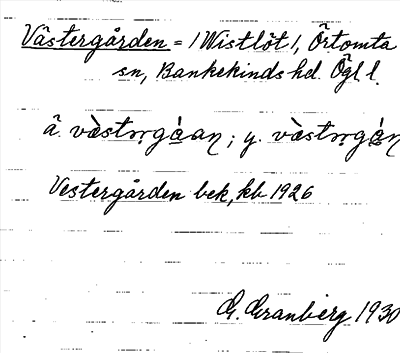 Västergården = /Wistlöt/, Örtomta
sn, Bankekinds hd. Ögl l.
ä. vàstərgá̱an; y. vàstərgá̱n
Vestergården bek, kb 1926
G. Granberg 1930